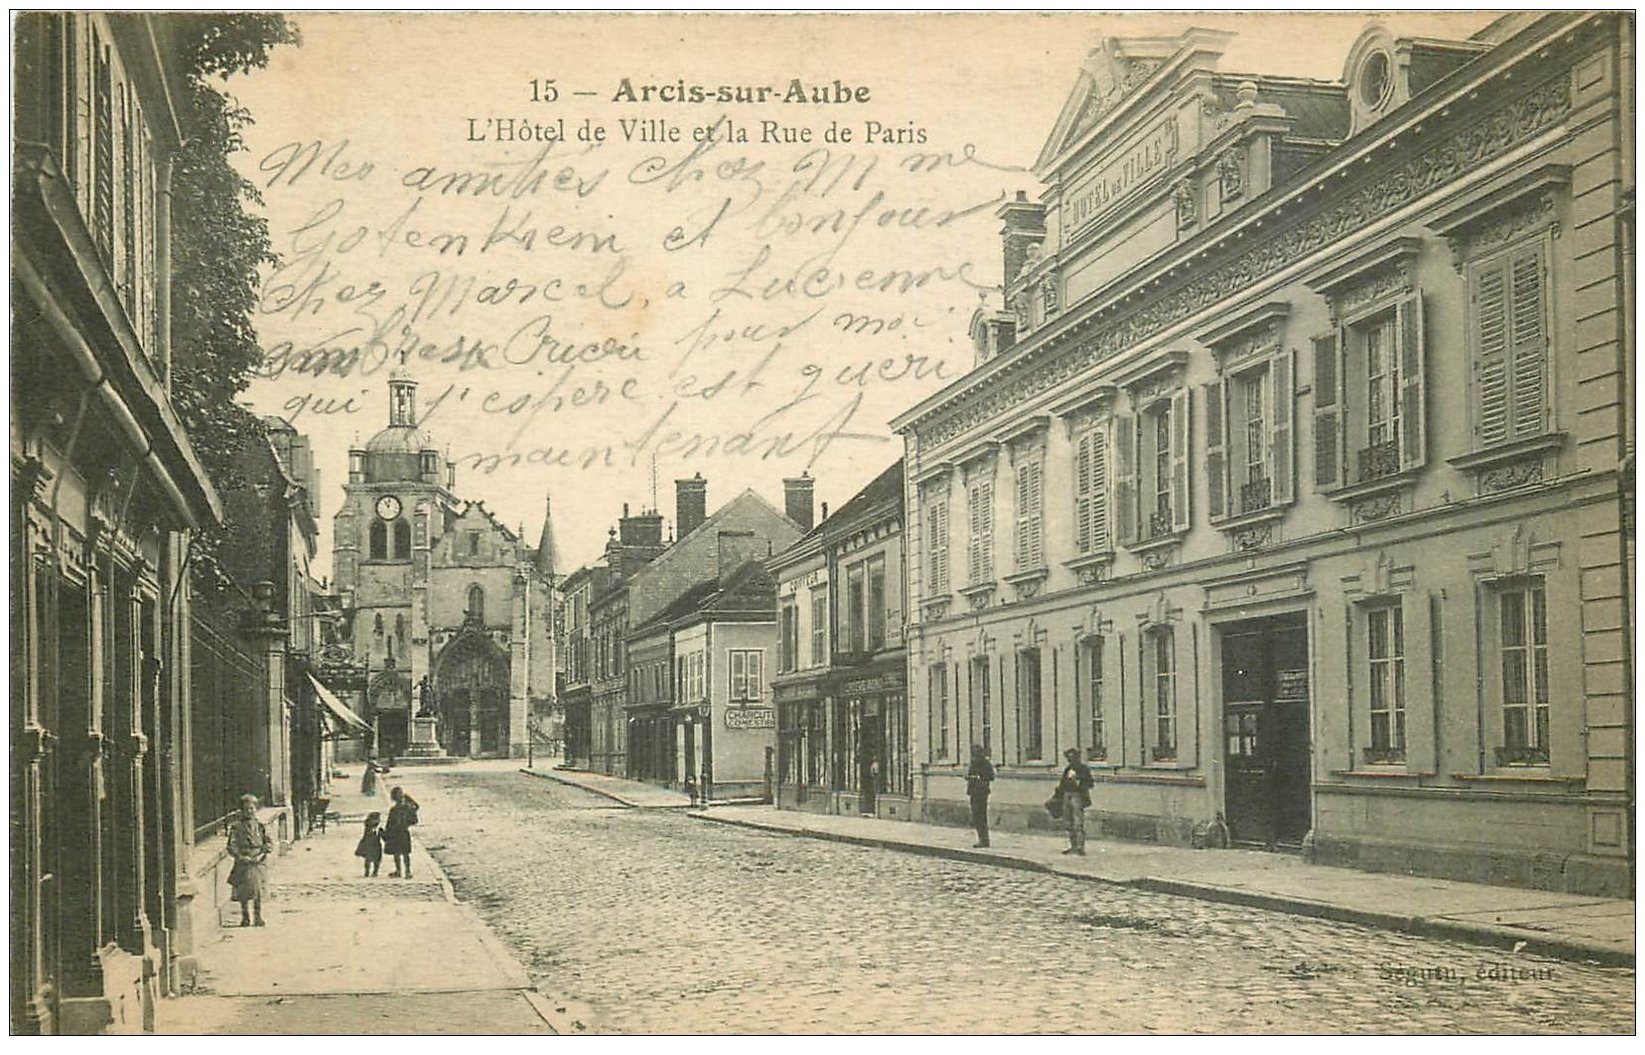 15 — Arcis-sur-Aube
L'Hôtel de Ville et la Rue de Paris
Mes amitiés chez Mme
et bonjour
chez Marcel, a Lucienne
pour moi
qui j'espere est gueri
maintenant
HOTEL DE VILLE
CHARCUT
COMESTIB
Séguin, éditeur